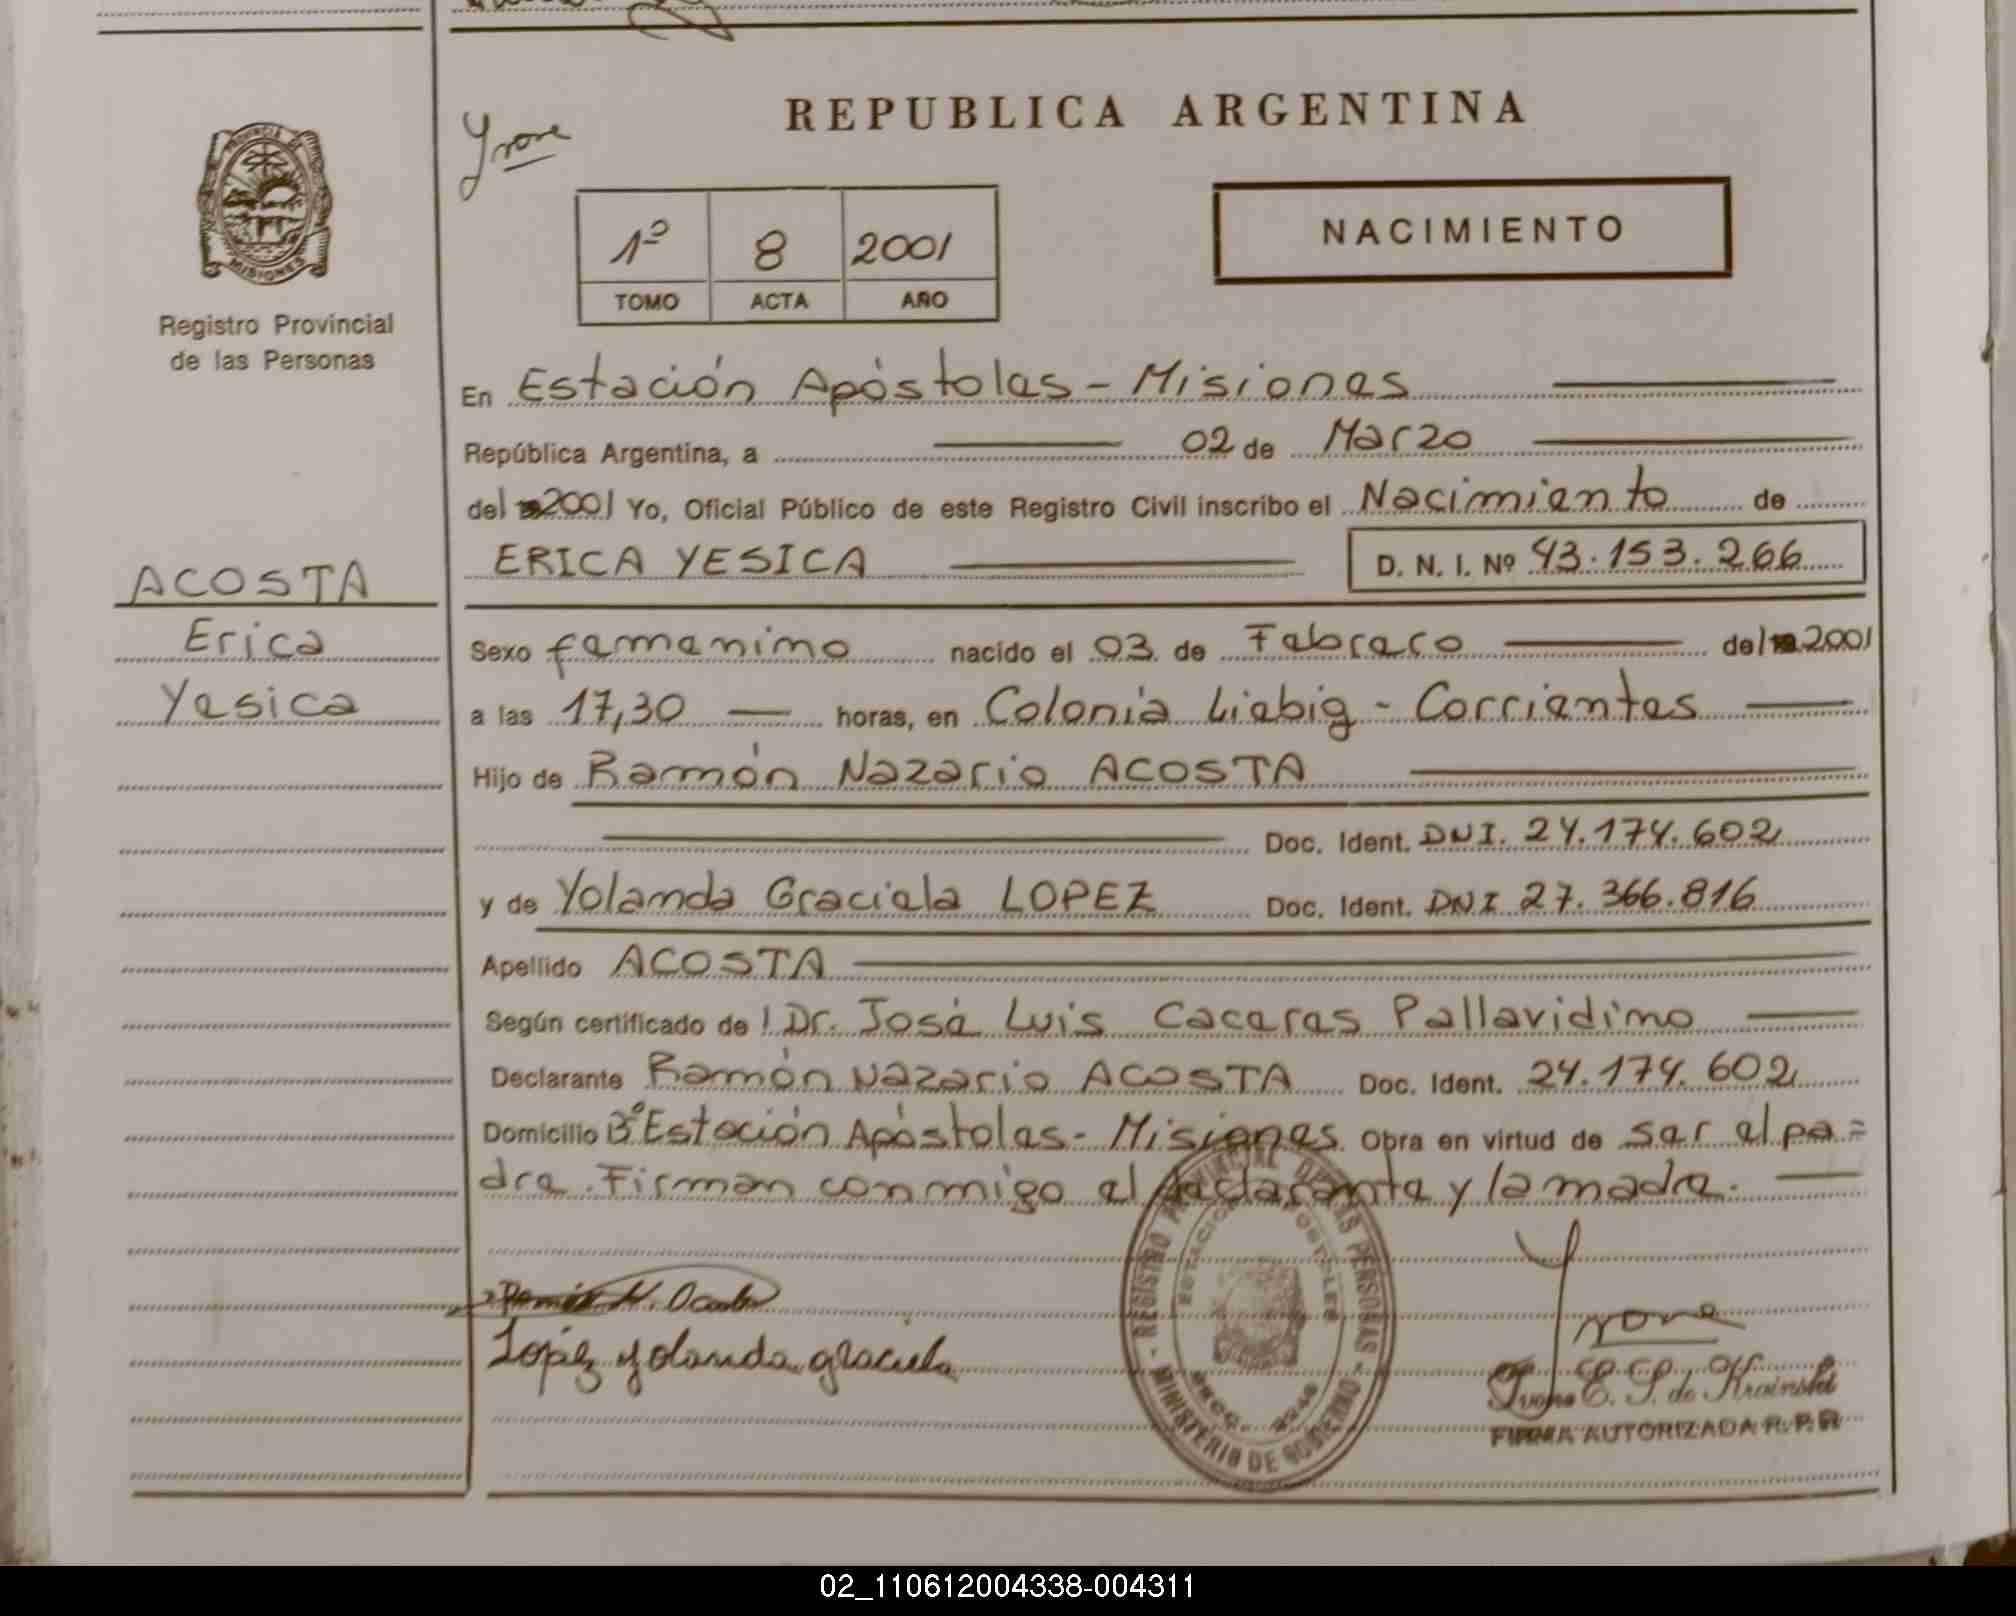 REPUBLICA ARGENTINA
PROVINCIA
MISIONES
Registro Provincial
de las Personas
NACIMIENTO
1º 8 2001
TOMO ACTA AÑO
En Estación Apóstoles - Misiones
República Argentina, a 02 de Marzo
del 2001 Yo, Oficial Público de este Registro Civil inscribo el Nacimiento de
ERICA YESICA D. N. I. Nº 43.153.266
ACOSTA
Erica
Yesica
Sexo femenino nacido el 03 de Febrero del 2001
a las 17,30 horas, en Colonia Liebig - Corrientes
Hijo de Ramón Nazario ACOSTA
Doc. Ident. DNI. 24.174.602
y de Yolanda Graciela LOPEZ Doc. Ident. DNI 27.366.816
Apellido ACOSTA
Según certificado de l Dr. José Luis Caceres Pallavidino
Declarante Ramón Nazario ACOSTA Doc. Ident. 24.174.602
Domicilio Bº Estación Apóstoles - Misiones Obra en virtud de ser el pa=
dre. Firman conmigo el declarante y la madre.
REGISTRO PROVINCIAL DE LAS PERSONAS - MINISTERIO DE GOBIERNO -
ESTACION APOSTOLES
Lopéz yolanda graciela
E. S. de
FIRMA AUTORIZADA R. P. P.
02_110612004338-004311